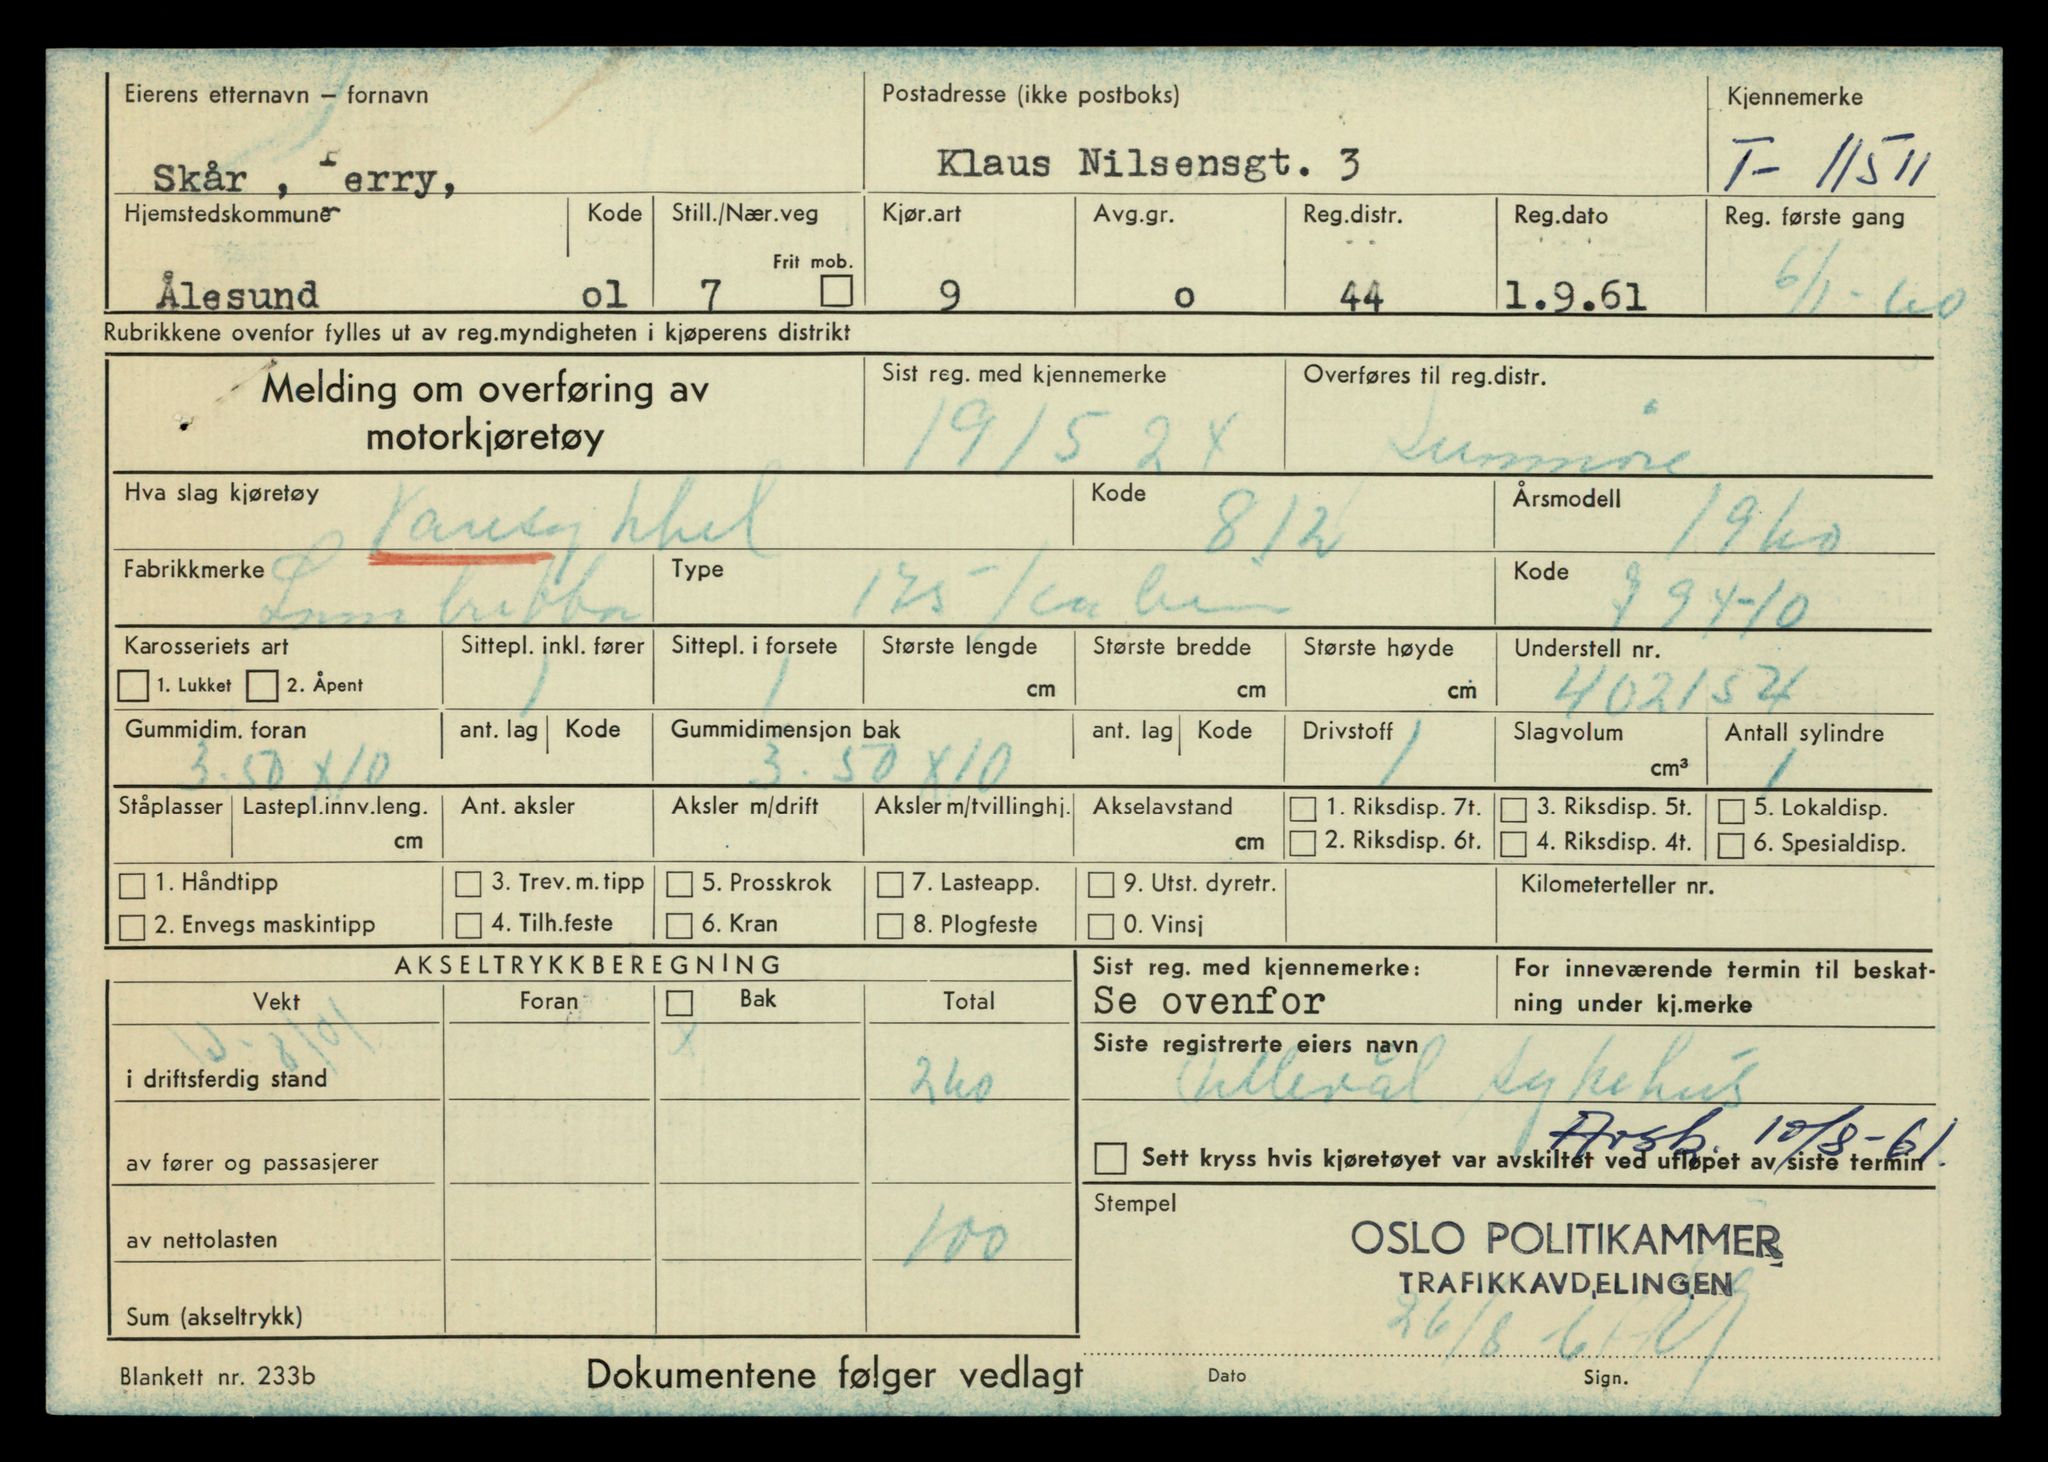 Eierens etternavn – fornavn
Postadresse (ikke postboks)
Kjennemerke
Skår , Terry,
Klaus Nilsensgt. 3
T- 11511
Hjemstedskommune
Kode
Still./Nær.veg
Kjør.art
Avg.gr.
Reg.distr.
Reg.dato
Reg. første gang
Frit mob.
Ålesund
o1
7
9
o
44
1.9.61
6/1-60
Rubrikkene ovenfor fylles ut av reg.myndigheten i kjøperens distrikt
Melding om overføring av
motorkjøretøy
Sist reg. med kjennemerke
Overføres til reg.distr.
Hva slag kjøretøy
Varesykkel
Kode
812
Årsmodell
1960
Fabrikkmerke
Lambretta
Type
175
Kode
Karosseriets art
Sittepl. inkl. fører
Sittepl. i forsete
Største lengde
Største bredde
Største høyde
Understell nr.
1. Lukket
2. Åpent
1
1
cm
cm
cm
402154
Gummidim. foran
ant. lag
Kode
Gummidimensjon bak
ant. lag
Kode
Drivstoff
Slagvolum
Antall sylindre
3.50 x10
3.50 x10
1
cm³
1
Ståplasser
Lastepl.innv.leng.
Ant. aksler
Aksler m/drift
Aksler m/tvillinghj.
Akselavstand
1. Riksdisp. 7t.
3. Riksdisp. 5t.
5. Lokaldisp.
cm
cm
2. Riksdisp. 6t.
4. Riksdisp. 4t.
6. Spesialdisp.
1. Håndtipp
3. Trev. m. tipp
5. Prosskrok
7. Lasteapp.
9. Utst. dyretr.
Kilometerteller nr.
2. Envegs maskintipp
4. Tilh.feste
6. Kran
8. Plogfeste
0. Vinsj
AKSELTRYKKBEREGNING
Vekt
Foran
Bak
Total
i driftsferdig stand
x
240
av fører og passasjerer
av nettolasten
100
Sum (akseltrykk)
Sist reg. med kjennemerke:
Se ovenfor
For inneværende termin til beskat-
ning under kj.merke
Siste registrerte eiers navn
Ullevål sykehus
Avsk. 10/8-61.
Sett kryss hvis kjøretøyet var avskiltet ved utløpet av siste termin
Stempel
OSLO POLITIKAMMER
TRAFIKKAVDELINGEN
26/8-61
Blankett nr. 233b
Dokumentene følger vedlagt
Dato
Sign.